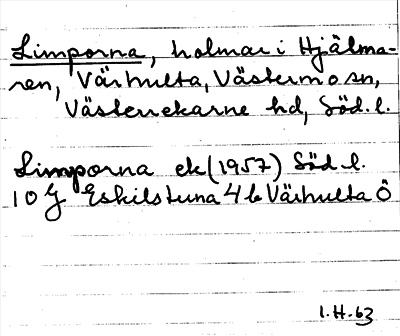 Limporna, holmar i Hjälma-
ren, Värhulta, Västermo sn,
Västerrekarne hd, Söd. l.
Limporna ek (1957) Söd. l.
10 G Eskilstuna 4 b Värhulta Ö
I. H. 63